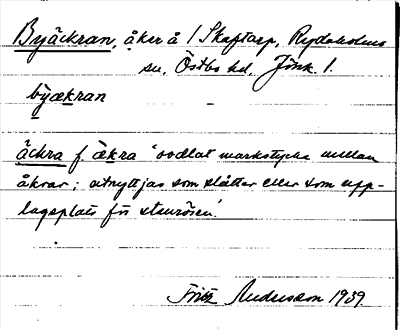 Byäckran, åker å / Skaftarp, Rydaholms
sn, Östbo hd, Jönk. l.
by̆ækran
äckra f. ækra "oodlat markstycke mellan
åkrar; utnyttjas som slåtter eller som upp-
lageplats för stenrösen".
Fritz Andersson 1939.